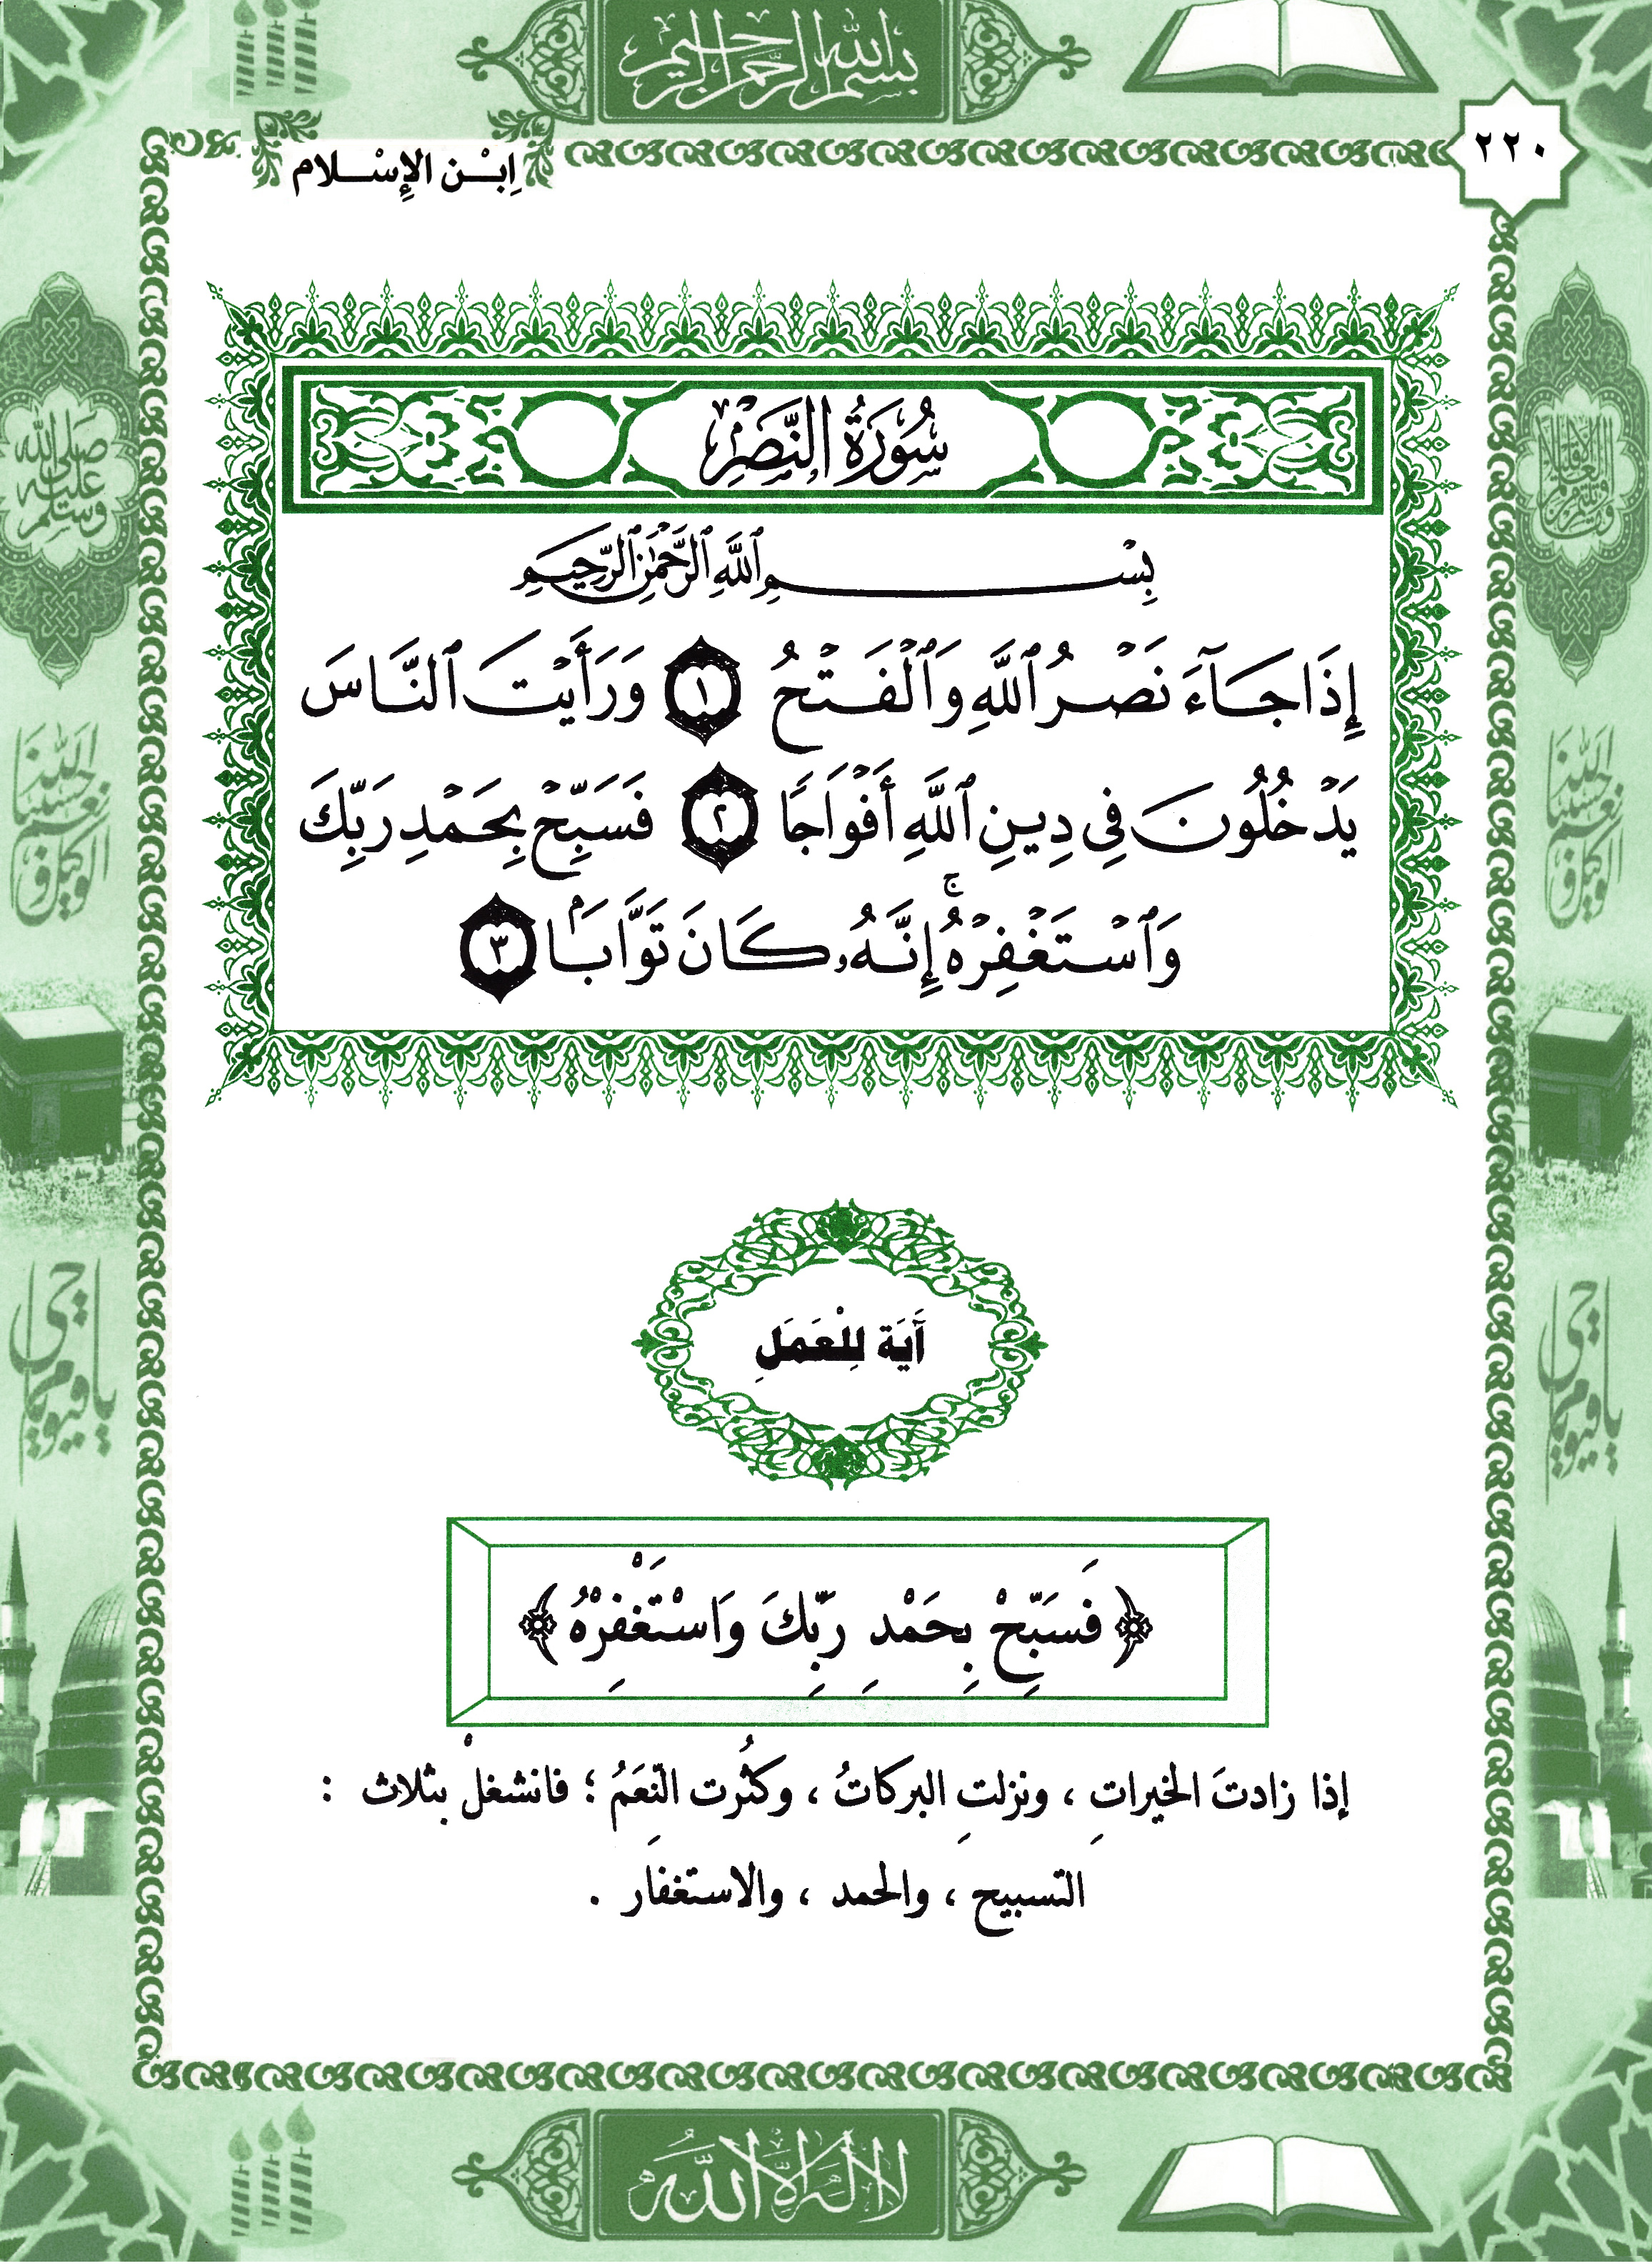 بسم الله الرحمن الرحيم
٢٢٠
اِبْن الإِسْلام
سُورَةُ النَّصْرِ
بِسْمِ ٱللَّهِ ٱلرَّحْمَٰنِ ٱلرَّحِيمِ
إِذَا جَآءَ نَصْرُ ٱللَّهِ وَٱلْفَتْحُ ١ وَرَأَيْتَ ٱلنَّاسَ
يَدْخُلُونَ فِى دِينِ ٱللَّهِ أَفْوَاجًا ٢ فَسَبِّحْ بِحَمْدِ رَبِّكَ
وَٱسْتَغْفِرْهُ ۚ إِنَّهُۥ كَانَ تَوَّابًۢا ٣
آيَة لِلْعَمَلِ
﴿ فَسَبِّحْ بِحَمْدِ رَبِّكَ وَاسْتَغْفِرْهُ ﴾
إذا زادتَ الخيراتِ ، ونزلتِ البركاتُ ، وكثُرت النِّعَمُ ؛ فانشغلْ بثلاث :
التسبيح ، والحمد ، والاستغفار .
صلى الله عليه وسلم
حسبنا الله ونعم الوكيل
حسبنا الله ونعم الوكيل
يا حي يا قيوم
يا حي يا قيوم
لا إله إلا الله